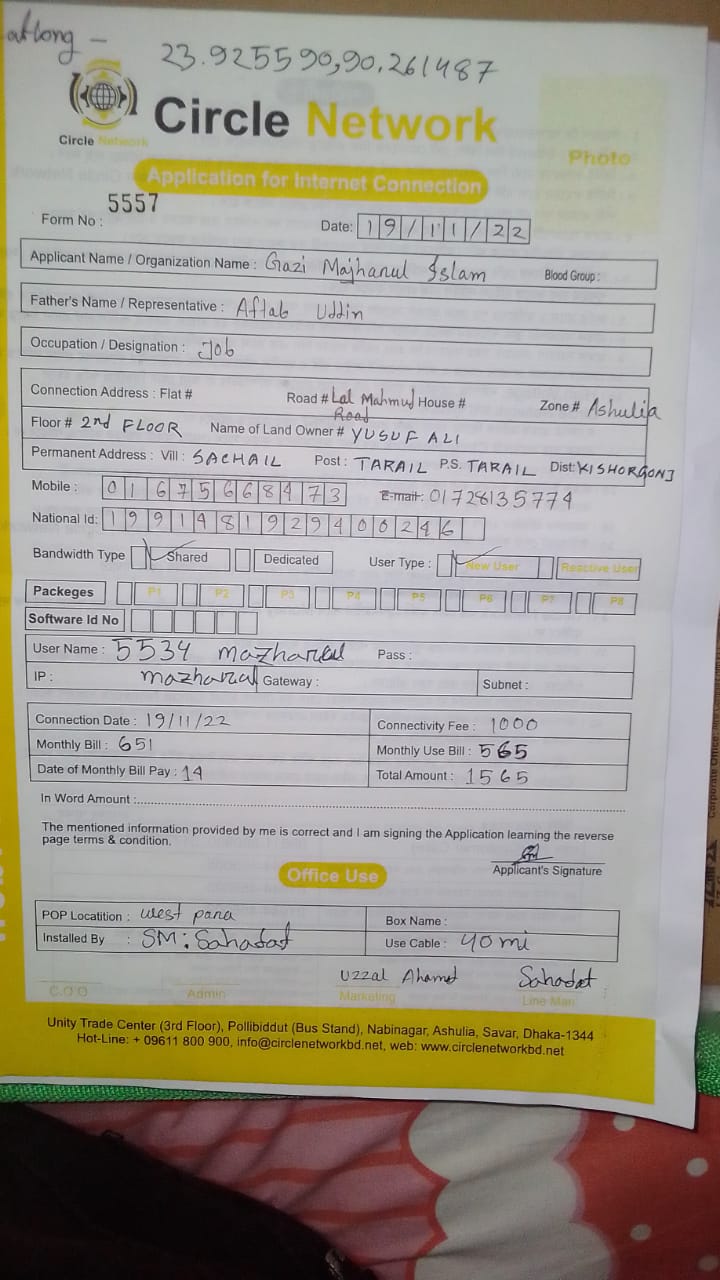 atlong -
23.925590,90.261487
Circle Network
Circle Network
Photo
Application for Internet Connection
Form No : 5557
Date: 19/11/22
Applicant Name / Organization Name : Gazi Majharul Islam Blood Group :
Father's Name / Representative : Aftab Uddin
Occupation / Designation : Job
Connection Address : Flat # Road # Lal Mahmud Road House # Zone # Ashulia
Floor # 2nd FLOOR Name of Land Owner # YUSUF ALI
Permanent Address : Vill : SACHAIL Post : TARAIL P.S. TARAIL Dist: KISHORGONJ
Mobile : 01675668473 E-mait: 01728135774
National Id: 19914819294000246
Bandwidth Type Shared Dedicated User Type : New User Reactive User
Packeges P1 P2 P3 P4 P5 P6 P7 P8
Software Id No
User Name : 5534 mazharul Pass :
IP : mazharul Gateway : Subnet :
Connection Date : 19/11/22 Connectivity Fee : 1000
Monthly Bill : 651 Monthly Use Bill : 565
Date of Monthly Bill Pay : 14 Total Amount : 1565
In Word Amount :
The mentioned information provided by me is correct and I am signing the Application learning the reverse
page terms & condition.
Applicant's Signature
Office Use
POP Locatition : west para Box Name :
Installed By : SM: Sahadat Use Cable : 40 mi
Uzzal Ahamed Sahadat
C.O.O Admin Marketing Line Man
Unity Trade Center (3rd Floor), Pollibiddut (Bus Stand), Nabinagar, Ashulia, Savar, Dhaka-1344
Hot-Line: + 09611 800 900, info@circlenetworkbd.net, web: www.circlenetworkbd.net